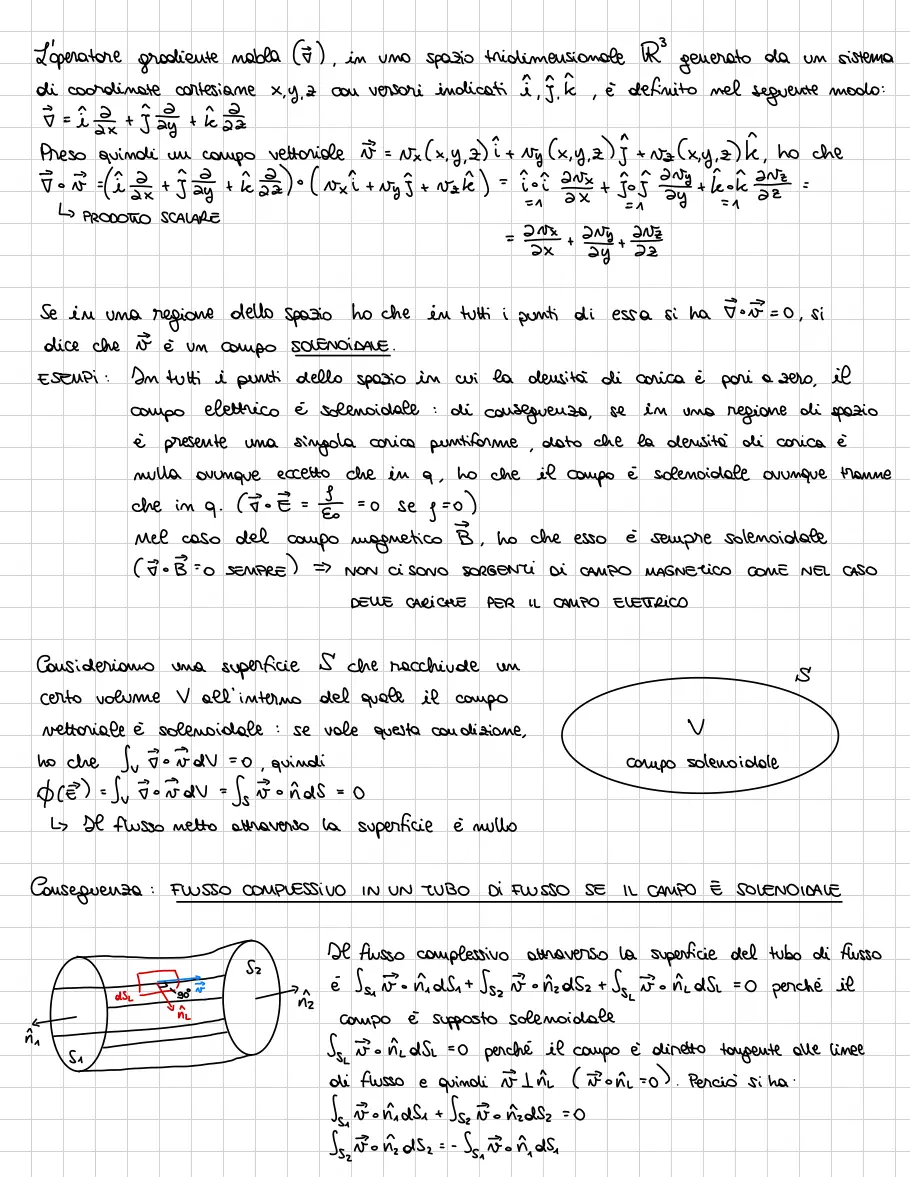 L'operatore gradiente nabla (∇⃗), in uno spazio tridimensionale ℝ³ generato da un sistema
di coordinate cartesiane x,y,z con versori indicati î, ĵ, k̂, è definito nel seguente modo:
∇⃗ = î ∂/∂x + ĵ ∂/∂y + k̂ ∂/∂z
Preso quindi un campo vettoriale v⃗ = vx(x,y,z)î + vy(x,y,z)ĵ + vz(x,y,z)k̂, ho che
∇⃗∘v⃗ = (î ∂/∂x + ĵ ∂/∂y + k̂ ∂/∂z)∘(vxî + vyĵ + vzk̂) = î∘î ∂vx/∂x + ĵ∘ĵ ∂vy/∂y + k̂∘k̂ ∂vz/∂z =
=1 =1 =1
↳ PRODOTTO SCALARE
= ∂vx/∂x + ∂vy/∂y + ∂vz/∂z
Se in una regione dello spazio ho che in tutti i punti di essa si ha ∇⃗∘v⃗ = 0, si
dice che v⃗ è un campo SOLENOIDALE.
ESEMPI: In tutti i punti dello spazio in cui la densità di carica è pari a zero, il
campo elettrico è solenoidale : di conseguenza, se in una regione di spazio
è presente una singola carica puntiforme, dato che la densità di carica è
nulla ovunque eccetto che in q, ho che il campo è solenoidale ovunque tranne
che in q. (∇⃗∘E⃗ = ρ/ε₀ = 0 se ρ=0)
Nel caso del campo magnetico B⃗, ho che esso è sempre solenoidale
(∇⃗∘B⃗ = 0 SEMPRE) ⇒ NON CI SONO SORGENTI DI CAMPO MAGNETICO COME NEL CASO
DELLE CARICHE PER IL CAMPO ELETTRICO
Consideriamo una superficie S che racchiude un
certo volume V all'interno del quale il campo
vettoriale è solenoidale : se vale questa condizione,
ho che ∫V ∇⃗∘v⃗ dV = 0, quindi
ϕ(E⃗) = ∫V ∇⃗∘v⃗ dV = ∫S v⃗∘n̂ dS = 0
↳ Il flusso netto attraverso la superficie è nullo
S
V
campo solenoidale
Conseguenza: FLUSSO COMPLESSIVO IN UN TUBO DI FLUSSO SE IL CAMPO È SOLENOIDALE
S2
dSL
90°
v⃗
n̂L
n̂2
n̂1
S1
Il flusso complessivo attraverso la superficie del tubo di flusso
è ∫S1 v⃗∘n̂1dS1 + ∫S2 v⃗∘n̂2dS2 + ∫SL v⃗∘n̂LdSL = 0 perché il
campo è supposto solenoidale
∫SL v⃗∘n̂LdSL = 0 perché il campo è diretto tangente alle linee
di flusso e quindi v⃗⊥n̂L (v⃗∘n̂L=0). Perciò si ha:
∫S1 v⃗∘n̂1dS1 + ∫S2 v⃗∘n̂2dS2 = 0
∫S2 v⃗∘n̂2dS2 = - ∫S1 v⃗∘n̂1dS1